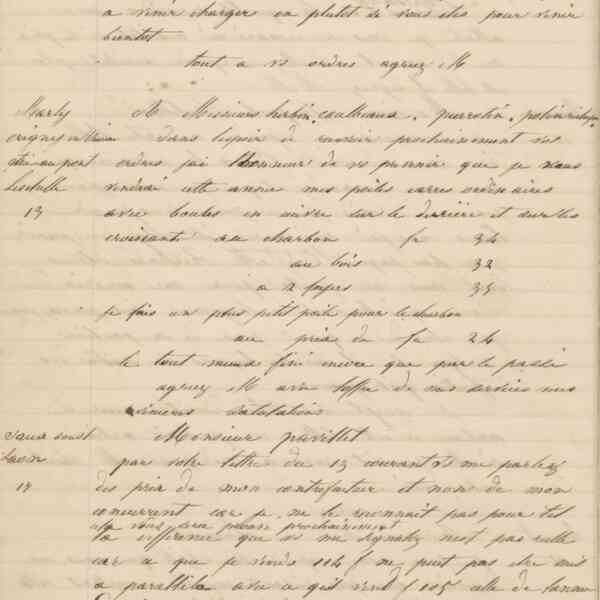 a venir charger ou plutot si vous etes pour venir
bientot
tout a vs ordres agreez M
Marly
origny
13
A Messieurs
dans lespoir de recevoir prochainement vos
ordres jai lhonneur de vs prevenir que je vous
vendrai cette annee mes poeles carres ordinaires
avec boules en cuivre sur le derriere et sur les
croissants au charbon fr 34
au bois 32
a 2 foyers 35
je fais un plus petit poele pour le charbon
au prix de fr 26
le tout mieux fini encore que par le passé
agreez M avec loffre de mes services mes
sinceres salutations
Laon
19
Monsieur pavillet
par votre lettre du 13 courant vs me parlez
des prix de mon contrefacteur et non de mon
concurrent car je ne le reconnait pas pour tel
cela vous sera prouvé prochainement
la difference que vs me signalez nest pas reelle
car ce que je vends 104 f ne peut pas etre mis
a parallele avec ce quil vend f 105 celle de